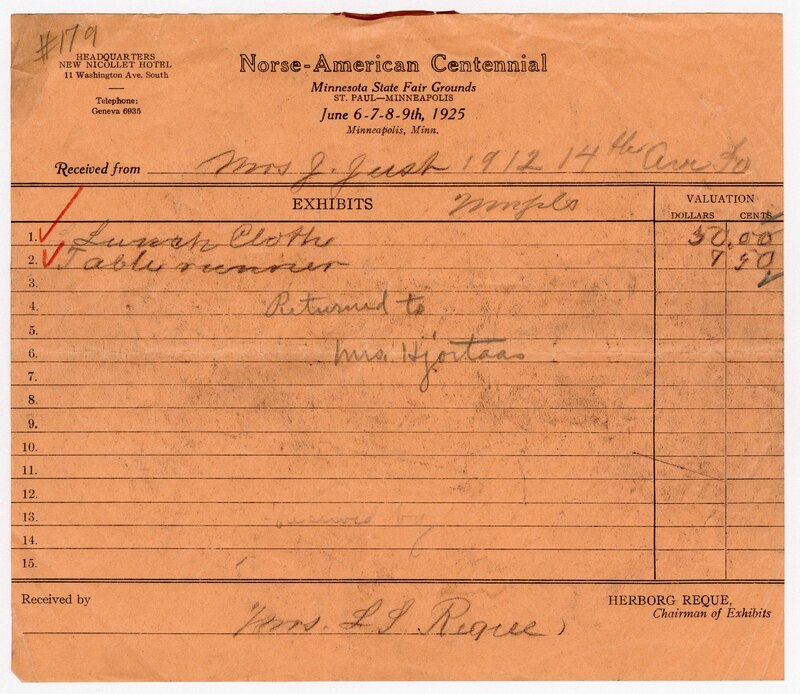 #179
HEADQUARTERS
NEW NICOLLET HOTEL
11 Washington Ave. South
Telephone:
Geneva 6935
Norse-American Centennial
Minnesota State Fair Grounds
ST. PAUL—MINNEAPOLIS
June 6-7-8-9th, 1925
Minneapolis, Minn.
Received from Mrs J. Just 1912 14th Ave So
EXHIBITS Mnpls VALUATION
DOLLARS CENTS
1. Lunch Clothe 50.00
2. Table runner 7 50
3.
4. Returned to
5.
6. Mrs. Hjortaas
7.
8.
9.
10.
11.
12.
13. by
14.
15.
Received by Mrs. L S Reque
HERBORG REQUE,
Chairman of Exhibits